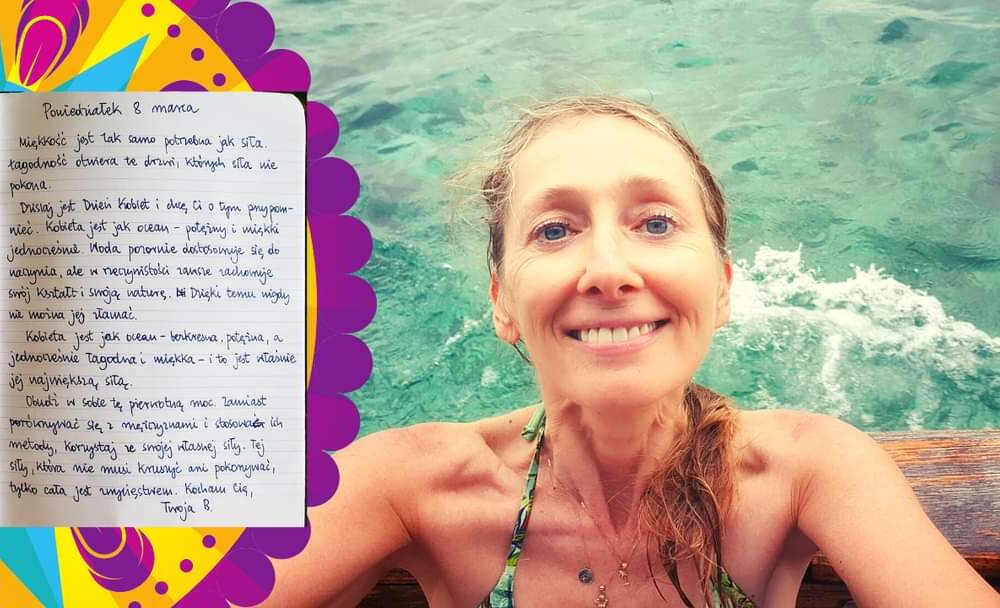 Poniedziałek 8 marca
Miękkość jest tak samo potrzebna jak siła.
Łagodność otwiera te drzwi, których siła nie
pokona.
Dzisiaj jest Dzień Kobiet i chcę Ci o tym przypom-
nieć. Kobieta jest jak ocean - potężny i miękki
jednocześnie. Woda pozornie dostosowuje się do
naczynia, ale w rzeczywistości zawsze zachowuje
swój kształt i swoją naturę. Dzięki temu nigdy
nie można jej złamać.
Kobieta jest jak ocean - bezkresna, potężna, a
jednocześnie łagodna i miękka - i to jest właśnie
jej największą siłą.
Obudź w sobie tę pierwotną moc. Zamiast
porównywać się z mężczyznami i stosować ich
metody, korzystaj ze swojej własnej siły. Tej
siły, która nie musi kruszyć ani pokonywać,
tylko cała jest zwycięstwem. Kocham Cię,
Twoja B.